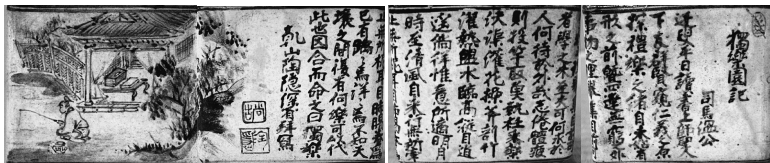 獨樂園記
司馬溫公
迂叟平日讀書上師聖人
下友群賢窺仁義之原
探禮樂之緒自未始有
形之前暨四達無窮之外
事物之理舉集目前
者學之未至夫可何求於
人何待於外哉志倦體疲
則投竿取魚執衽采藥
決渠灌花操斧剖竹
濯熱盥水臨高縱目逍
遙徜徉惟意所適明月
時至清風自來行無所牽
止無所柅耳目肺腸悉為
己有踽踽焉洋洋焉不知天
壤之間復有何樂可以代
此也因合而命之曰獨樂